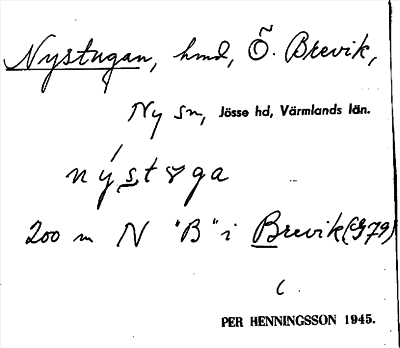 Nystugan, hmd, Ö. Brevik,
Ny sn, Jösse hd, Värmlands län.
nýstɤga
200 m N "B" i Brevik (G79)
c.
PER HENNINGSSON 1945.